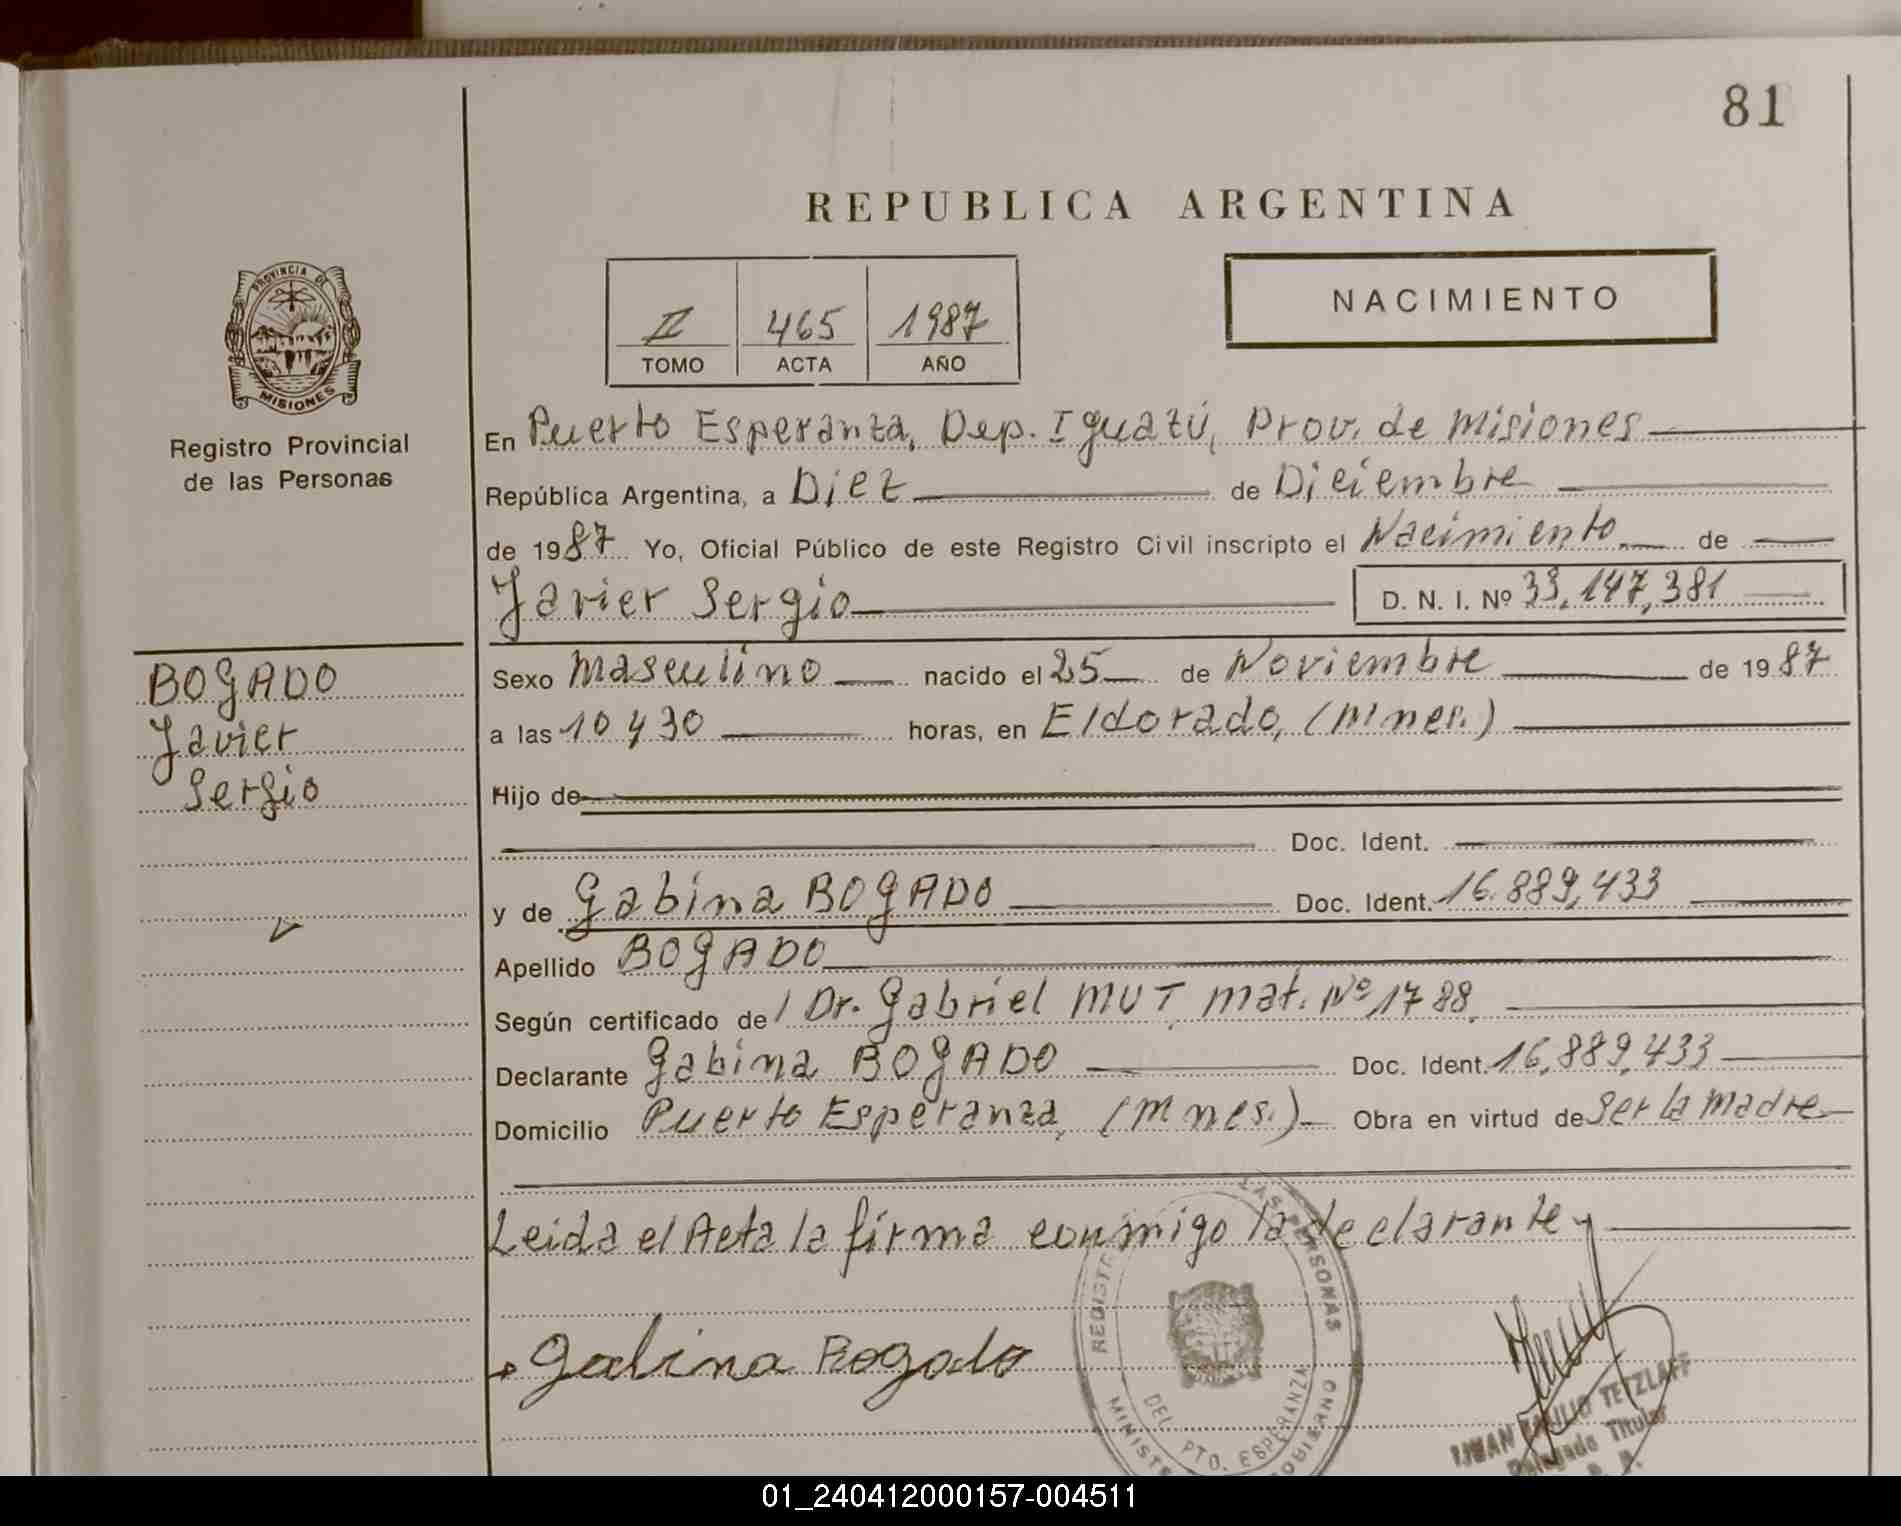 81
REPUBLICA ARGENTINA
PROVINCIA DE
MISIONES
Registro Provincial
de las Personas
II 465 1987
TOMO ACTA AÑO
NACIMIENTO
En Puerto Esperanza, Dep. Iguazú, Prov. de Misiones
República Argentina, a Diez de Diciembre
de 1987 Yo, Oficial Público de este Registro Civil inscripto el Nacimiento de
Javier Sergio D. N. I. Nº 33.147.381
BOGADO
Javier
Sergio
Sexo Masculino nacido el 25 de Noviembre de 1987
a las 10 y 30 horas, en Eldorado, (Mnes.)
Hijo de
Doc. Ident.
y de Gabina BOGADO Doc. Ident. 16.889.433
Apellido BOGADO
Según certificado de / Dr. Gabriel MUT, mat. Nº 1788.
Declarante Gabina BOGADO Doc. Ident. 16.889.433
Domicilio Puerto Esperanza, (Mnes.) Obra en virtud de Ser la madre
Leida el Acta la firma conmigo la declarante
Gabina Bogado
LAS PERSONAS
DEL PTO. ESPERANZA
TETZLAFF
Delegado Titular
01_240412000157-004511